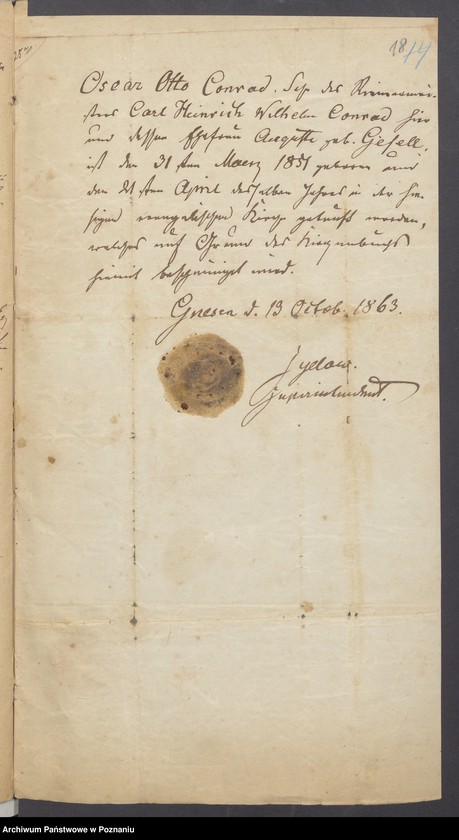 1874
Oscar Otto Conrad, Sohn des Riemermei-
sters Carl Heinrich Wilhelm Conrad hier
und dessen Ehefrau Auguste geb. Gesell,
ist den 31 sten Maerz 1851 geboren und
den 21 sten April desselben Jahres in der hie-
sigen evangelischen Kirche getauft worden,
welches auf Grund des Kirchenbuchs
hiemit bescheinigt wird.
Gnesen d. 13 Octob. 1863.
Sydow.
Superintendent.
Archiwum Państwowe w Poznaniu